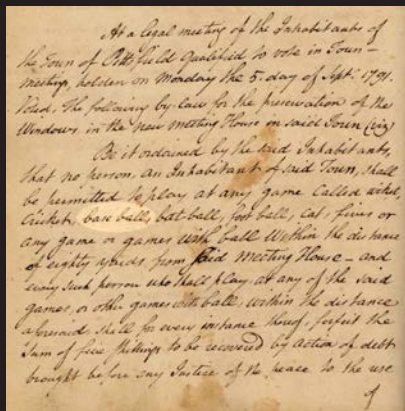 At a legal meeting of the Inhabitants of
the Town of Pittsfield qualified to vote in Town-
meeting, holden on Monday the 5. day of Sept. 1791.
Voted, The following by-law for the preservation of the
Windows in the new meeting House in said Town (viz)
Be it ordained by the said Inhabitants,
that no person, an Inhabitant of said Town, shall
be permitted to play at any game called wicket,
cricket, base ball, bat ball, foot ball, cat, fives or
any game or games with ball within the distance
of eighty yards from said meeting House - and
every such person who shall play at any of the said
games, or other games with ball, within the distance
aforesaid, shall for every instance thereof, forfeit the
Sum of five shillings to be recovered by action of debt
brought before any Justice of the peace to the use
of